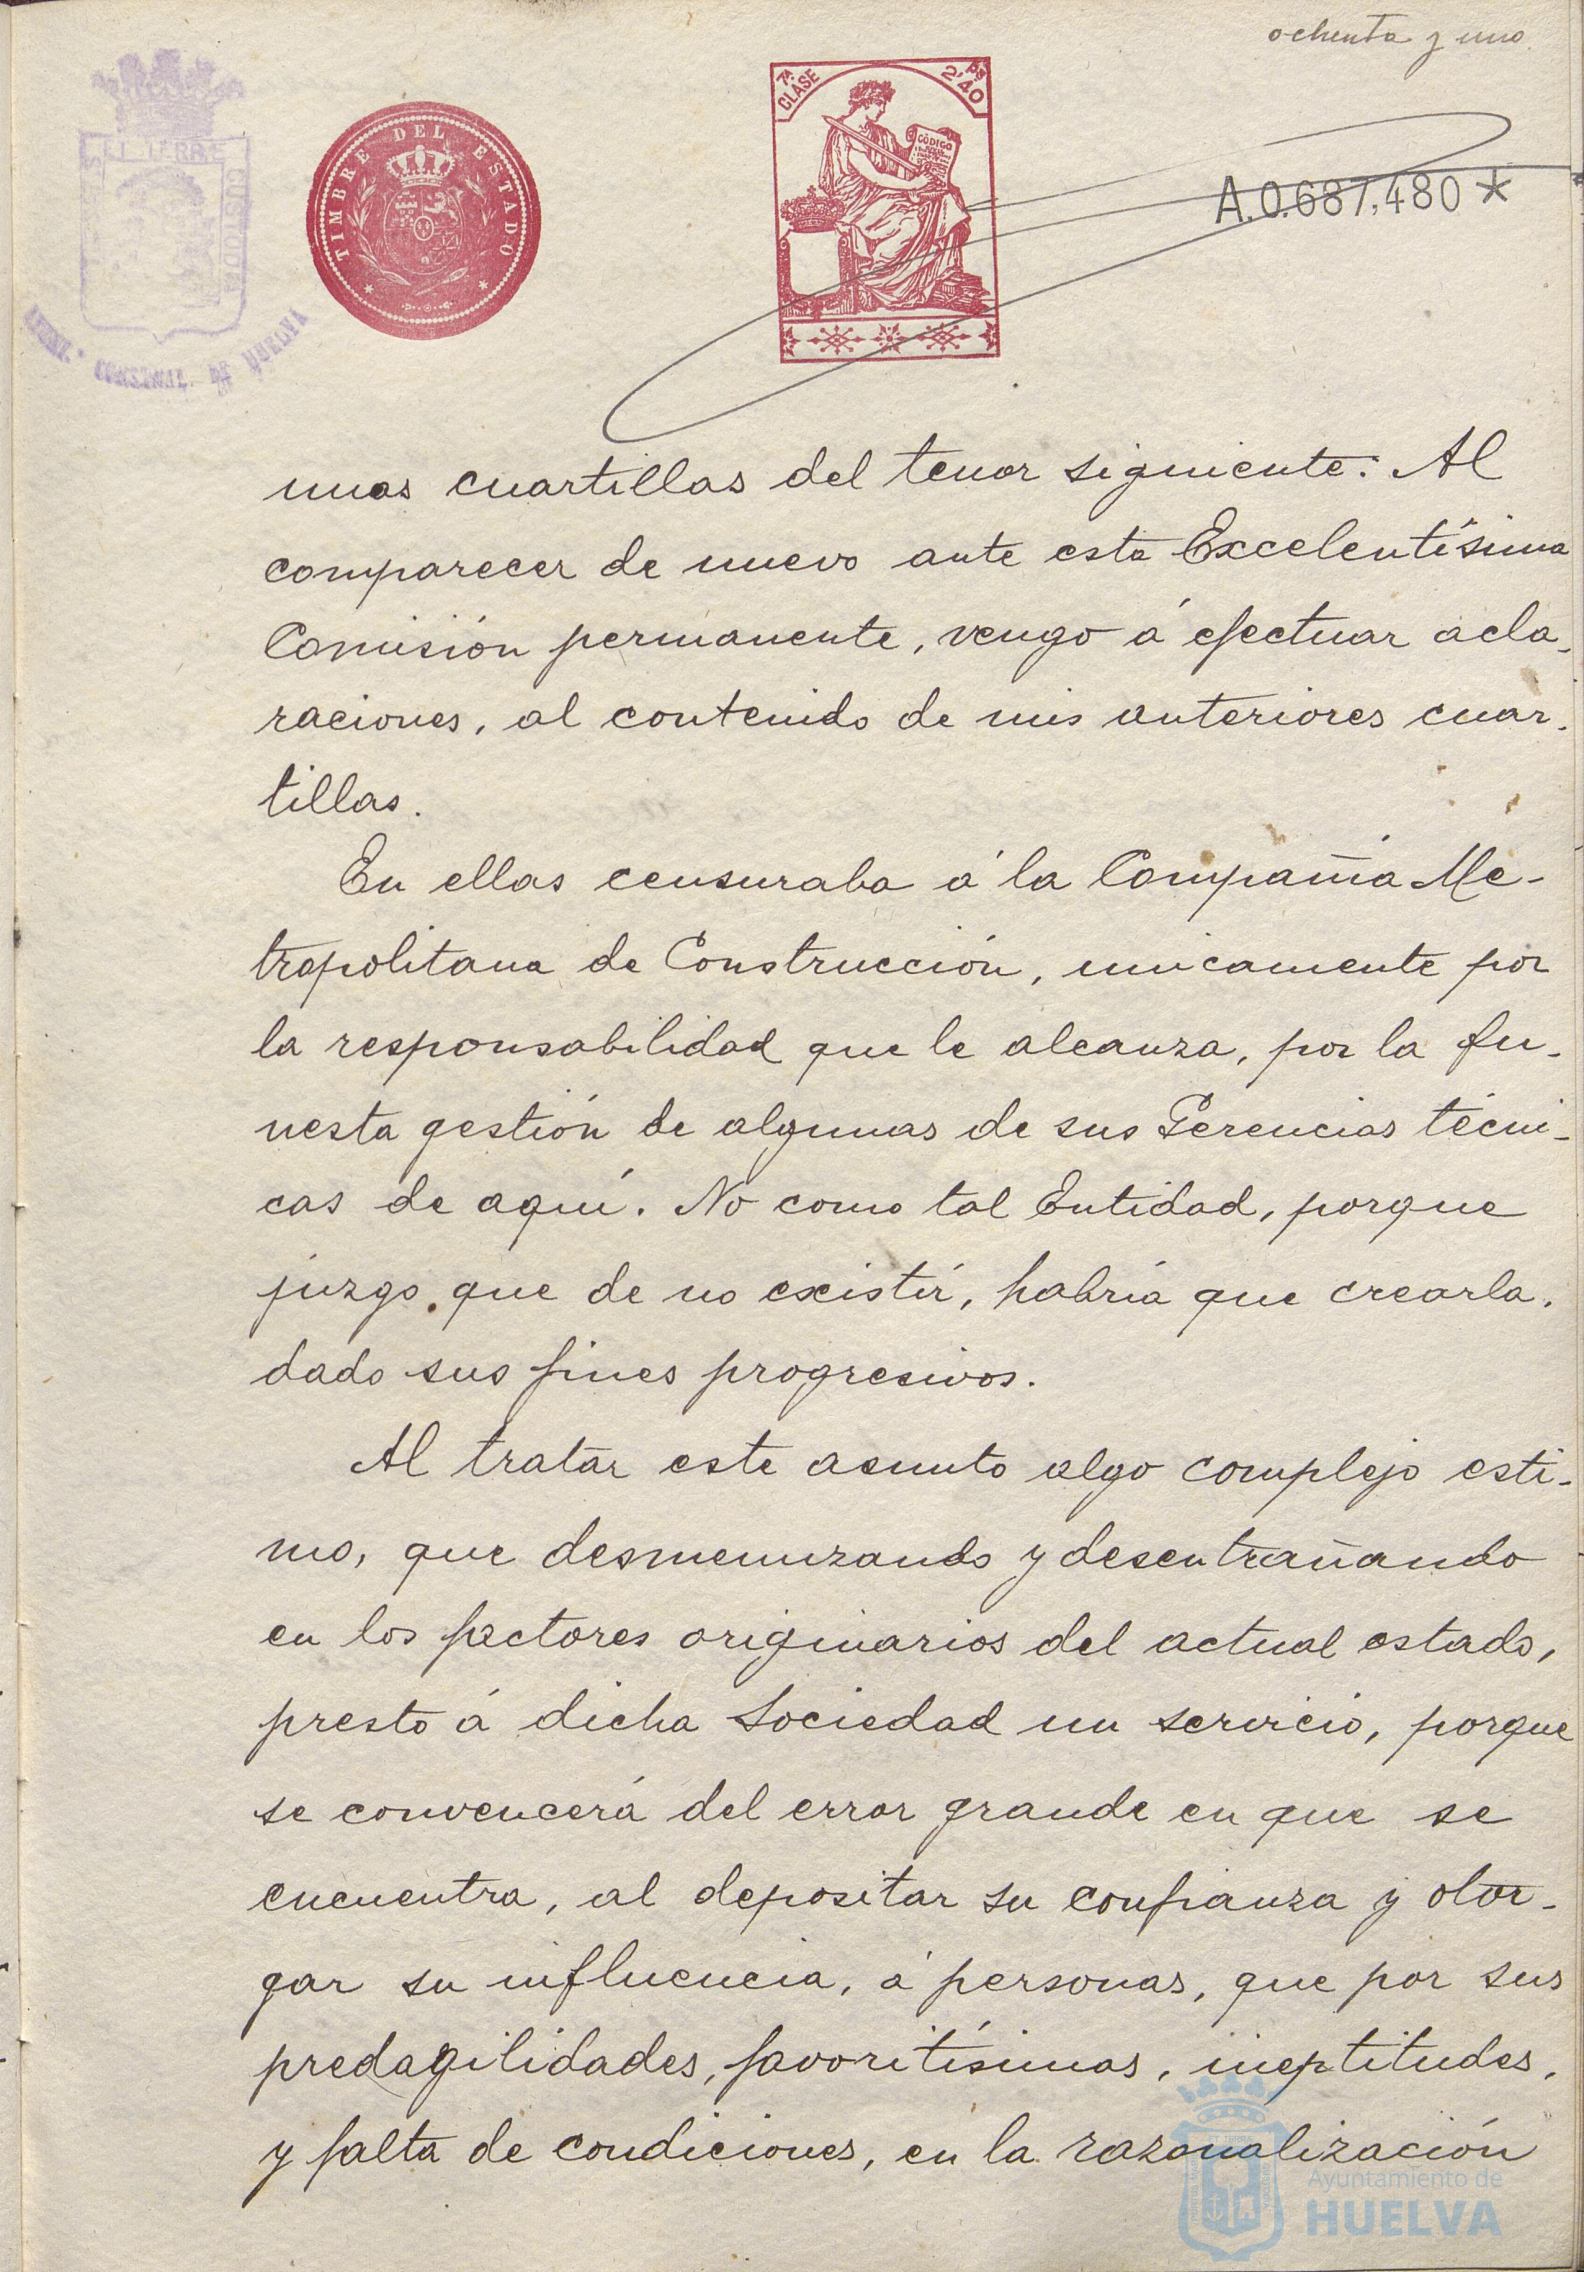 ochenta y uno
7ª CLASE
2'40 Pts
TIMBRE DEL ESTADO
CÓDIGO
A.0.687,480 *
unas cuartillas del tenor siguiente: Al
comparecer de nuevo ante esta Excelentísima
Comisión permanente, vengo á efectuar acla-
raciones, al contenido de mis anteriores cuar-
tillas.
En ellas censuraba á la Compañía Me-
tropolitana de Construcción, unicamente por
la responsabilidad que le alcanza, por la fu-
nesta gestión de algunas de sus Gerencias técni-
cas de aquí. No como tal Entidad, porque
juzgo que de no existir, habría que crearla,
dado sus fines progresivos.
Al tratar este asunto algo complejo esti-
mo, que desmenuzando y desentrañando
en los factores originarios del actual estado,
presto á dicha Sociedad un servicio, porque
se convencerá del error grande en que se
encuentra, al depositar su confianza y otor-
gar su influencia, á personas, que por sus
predagilidades, favoritísimas, ineptitudes,
y falta de condiciones, en la razonalización
Ayuntamiento de
HUELVA